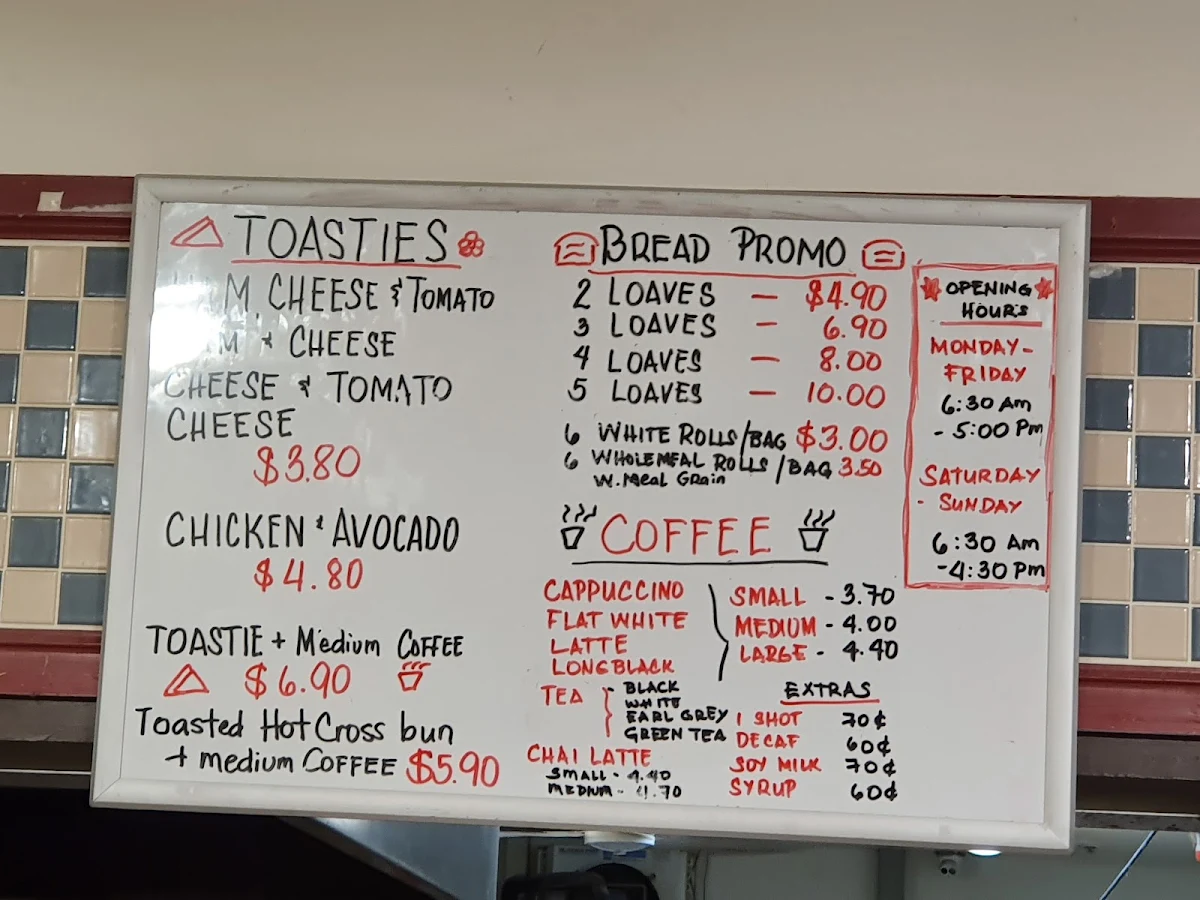 TOASTIES
M, CHEESE & TOMATO
M & CHEESE
CHEESE & TOMATO
CHEESE
$3.80
CHICKEN & AVOCADO
$4.80
TOASTIE + Medium COFFEE
$6.90
Toasted Hot Cross bun
+ medium COFFEE $5.90
BREAD PROMO
2 LOAVES — $4.90
3 LOAVES - 6.90
4 LOAVES — 8.00
5 LOAVES — 10.00
6 WHITE ROLLS/BAG $3.00
6 WHOLEMEAL ROLLS/BAG 3.50
W.Meal Grain
COFFEE
CAPPUCCINO
FLAT WHITE
LATTE
LONGBLACK
SMALL - 3.70
MEDIUM - 4.00
LARGE - 4.40
TEA
BLACK
WHITE
EARL GREY
GREEN TEA
CHAI LATTE
SMALL - 4.40
MEDIUM - 4.70
EXTRAS
1 SHOT 70¢
DECAF 60¢
SOY MILK 70¢
SYRUP 60¢
OPENING
HOURS
MONDAY-
FRIDAY
6:30 Am
- 5:00 Pm
SATURDAY
- SUNDAY
6:30 Am
-4:30 Pm